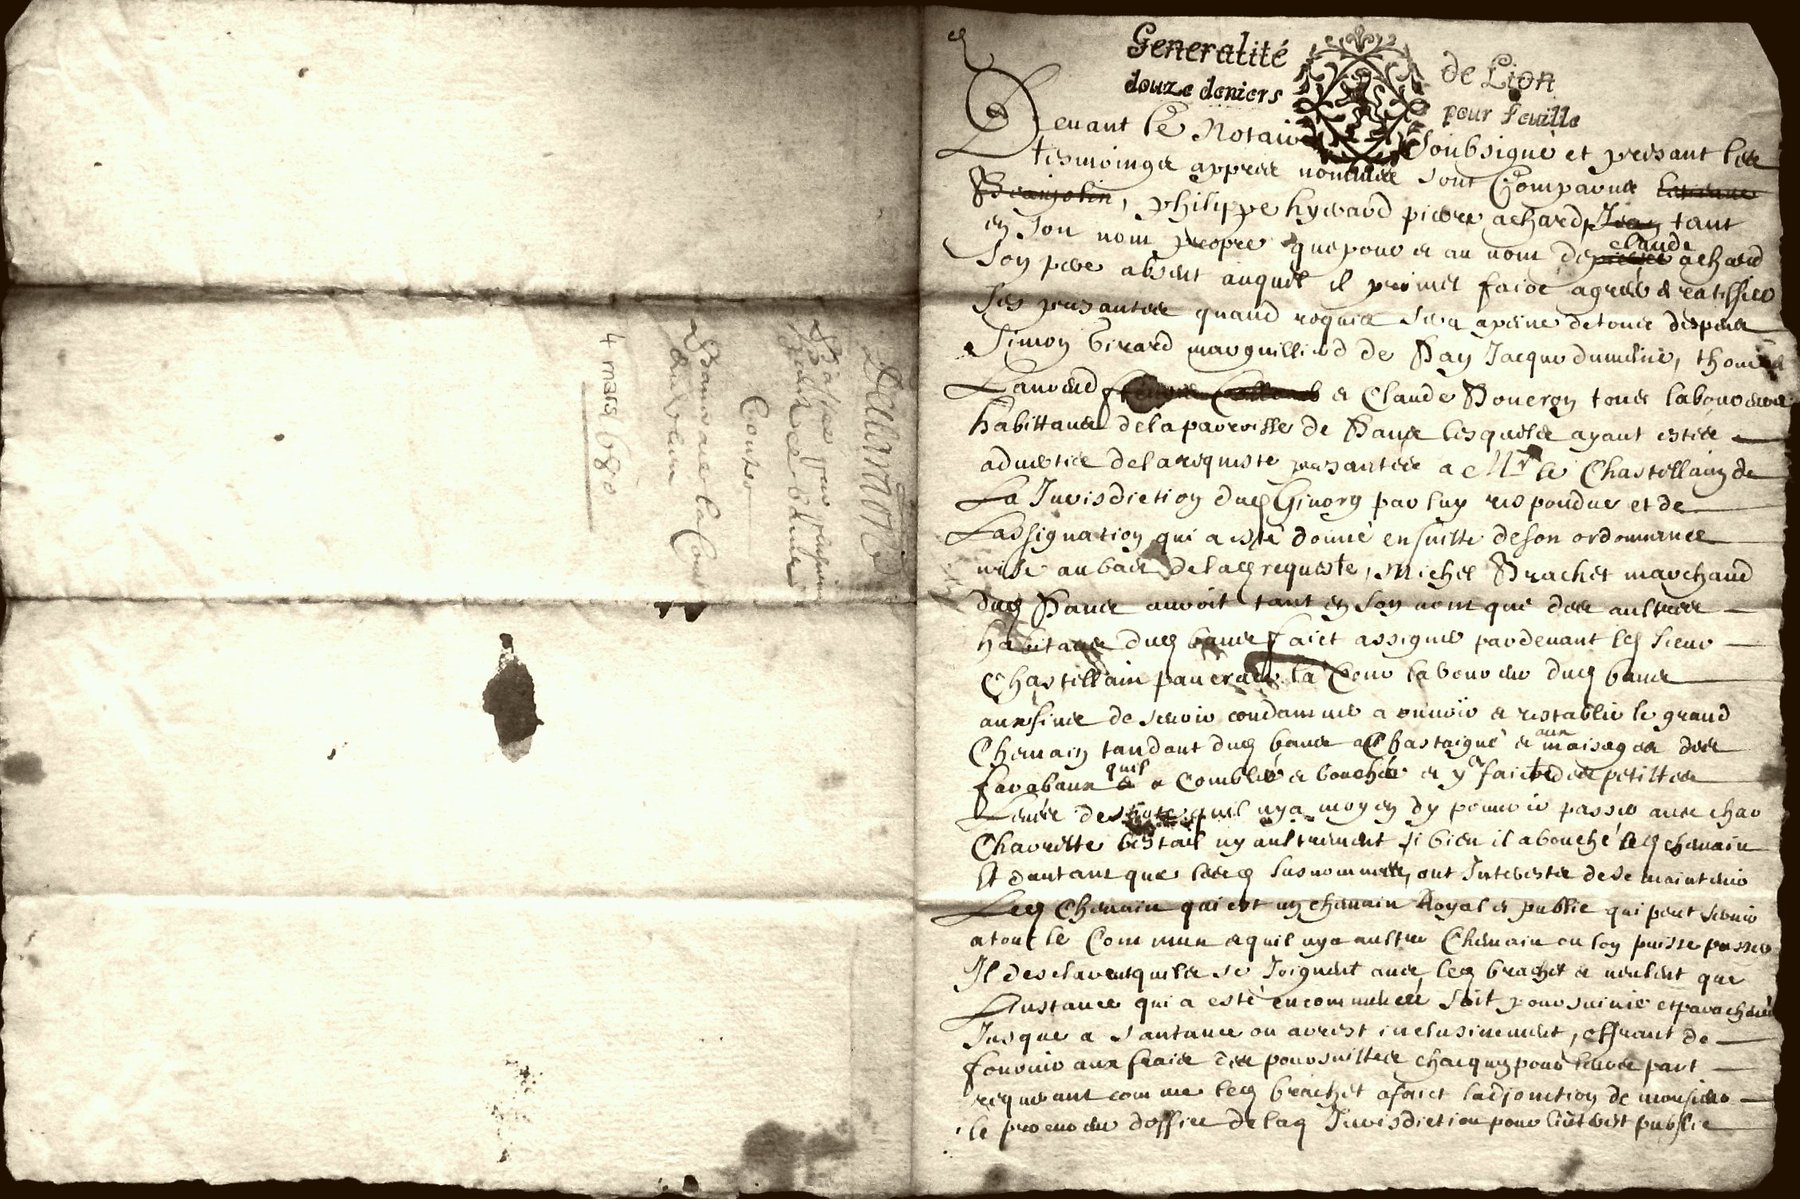 Generalité de Lion
douze deniers pour feuille
Devant le Notaire Soubsigné et presant les
tesmoings appres nommes sont Comparus
Philippe hyvard pierre achard tant
en son nom propre que pour et au nom de claude achard
son pere absent auquel il promet faire agreer et ratiffier
ses presantes quand requis sera a peine de tous despens
Simon Girard marguillier de Bans Jacque dumelin, thomas
et Claude Boueron tous laboureurs
habittans de la parroisse de Bans lesquels ayant estes
advertis de la requiste presantée a Mr le Chastellain de
La Jurisdiction dud Givors par luy respondue et de
Lassignation qui a esté donné en suitte de son ordonnance
mise au bas de lad requeste, Michel Brachet marchand
dud Bans auroit tant en son nom que des aultres
habitans dud bans faict assigner pardevant led sieur
Chastellain la Cour laboureur dud bans
aux fins de se voir condamner a ouvrir et restablir le grand
Chemain tandant dud bans a Chastaigné et aux maisages des
farabaux quil a Comblé et bouché et y faict des petittes
Levées de sorte quil ny a moyen dy pouvoir passer avec char
Charrette bestail ny aultrement si bien il a bouché led chemain
Et dautant que lesd susnommes, ont Interestz de se maintenir
Led Chemain qui est un chemain Royal et public qui peut servir
a tout le Commun et quil ny a aultre Chemain ou lon puisse passer
Il desclarent quils se Joignent avec led brachet et veulent que
Linstance qui a esté encommencée soit poursuivie et parachevée
Jusque a santance ou arrest inclusivement, offrant de
fournir aux frais des poursuittes chacquun pour leurs part
requerant comme led brachet a faict ladjonction de monsieur
le procureur doffice de lad Jurisdiction pour linterest public
Declaration
Contre
la Cour
4 mars 1680